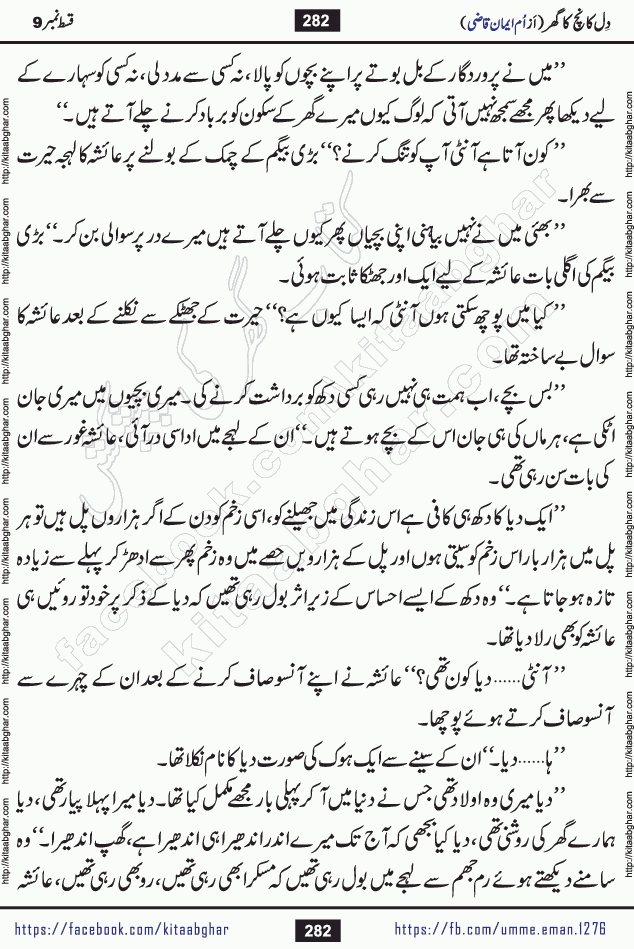 دِل کانچ کا گھر (اَز اُم ایمان قاضی)
282
قسط نمبر 9
’’میں نے پروردگار کے بل بوتے پر اپنے بچوں کو پالا، نہ کسی سے مدد لی، نہ کسی کو سہارے کے
لیے دیکھا پھر مجھے سمجھ نہیں آتی کہ لوگ کیوں میرے گھر کے سکون کو برباد کرنے چلے آتے ہیں۔‘‘
’’کون آتا ہے آنٹی آپ کو تنگ کرنے؟‘‘ بڑی بیگم کے چمک کے بولنے پر عائشہ کا لہجہ حیرت
سے بھرا۔
’’بھئی میں نے نہیں بیاہنی اپنی بچیاں پھر کیوں چلے آتے ہیں میرے در پر سوالی بن کر۔‘‘ بڑی
بیگم کی اگلی بات عائشہ کے لیے ایک اور جھٹکا ثابت ہوئی۔
’’کیا میں پوچھ سکتی ہوں آنٹی کہ ایسا کیوں ہے؟‘‘ حیرت کے جھٹکے سے نکلنے کے بعد عائشہ کا
سوال بے ساختہ تھا۔
’’بس بچے، اب ہمت ہی نہیں رہی کسی دکھ کو برداشت کرنے کی۔ میری بچیوں میں میری جان
اٹکی ہے، ہر ماں کی ہی جان اس کے بچے ہوتے ہیں۔‘‘ ان کے لہجے میں اداسی در آئی، عائشہ غور سے ان
کی بات سن رہی تھی۔
’’ایک دیا کا دکھ ہی کافی ہے اس زندگی میں جھیلنے کو، اسی زخم کو دن کے اگر ہزاروں پل ہیں تو ہر
پل میں ہزار بار اس زخم کو سیتی ہوں اور پل کے ہزارویں حصے میں وہ زخم پھر سے ادھڑ کر پہلے سے زیادہ
تازہ ہو جاتا ہے۔‘‘ وہ دکھ کے ایسے احساس کے زیر اثر بول رہی تھیں کہ دیا کے ذکر پر خود تو روئیں ہی
عائشہ کو بھی رلا دیا تھا۔
’’آنٹی...... دیا کون تھی؟‘‘ عائشہ نے اپنے آنسو صاف کرنے کے بعد ان کے چہرے سے
آنسو صاف کرتے ہوئے پوچھا۔
’’ہا...... دیا۔‘‘ ان کے سینے سے ایک ہوک کی صورت دیا کا نام نکلا تھا۔
’’دیا میری وہ اولاد تھی جس نے دنیا میں آ کر پہلی بار مجھے مکمل کیا تھا۔ دیا میرا پہلا پیار تھی، دیا
ہمارے گھر کی روشنی تھی، دیا کیا بجھی کہ آج تک میرے اندر اندھیرا ہی اندھیرا ہے، گھپ اندھیرا۔‘‘ وہ
سامنے دیکھتے ہوئے رم جھم سے لہجے میں بول رہی تھیں کہ مسکرا بھی رہی تھیں، رو بھی رہی تھیں، عائشہ
https://facebook.com/kitaabghar
282
https://fb.com/umme.eman.1276
http://kitaabghar.com http://kitaabghar.com http://kitaabghar.com http://kitaabghar.com http://kitaabghar.com http://kitaabghar.com http://kitaabghar.com http://kitaabghar.com
http://kitaabghar.com http://kitaabghar.com http://kitaabghar.com http://kitaabghar.com http://kitaabghar.com http://kitaabghar.com http://kitaabghar.com http://kitaabghar.com
کتاب گھر کی پیشکش
facebook.com/kitaabghar
kitaabghar.com